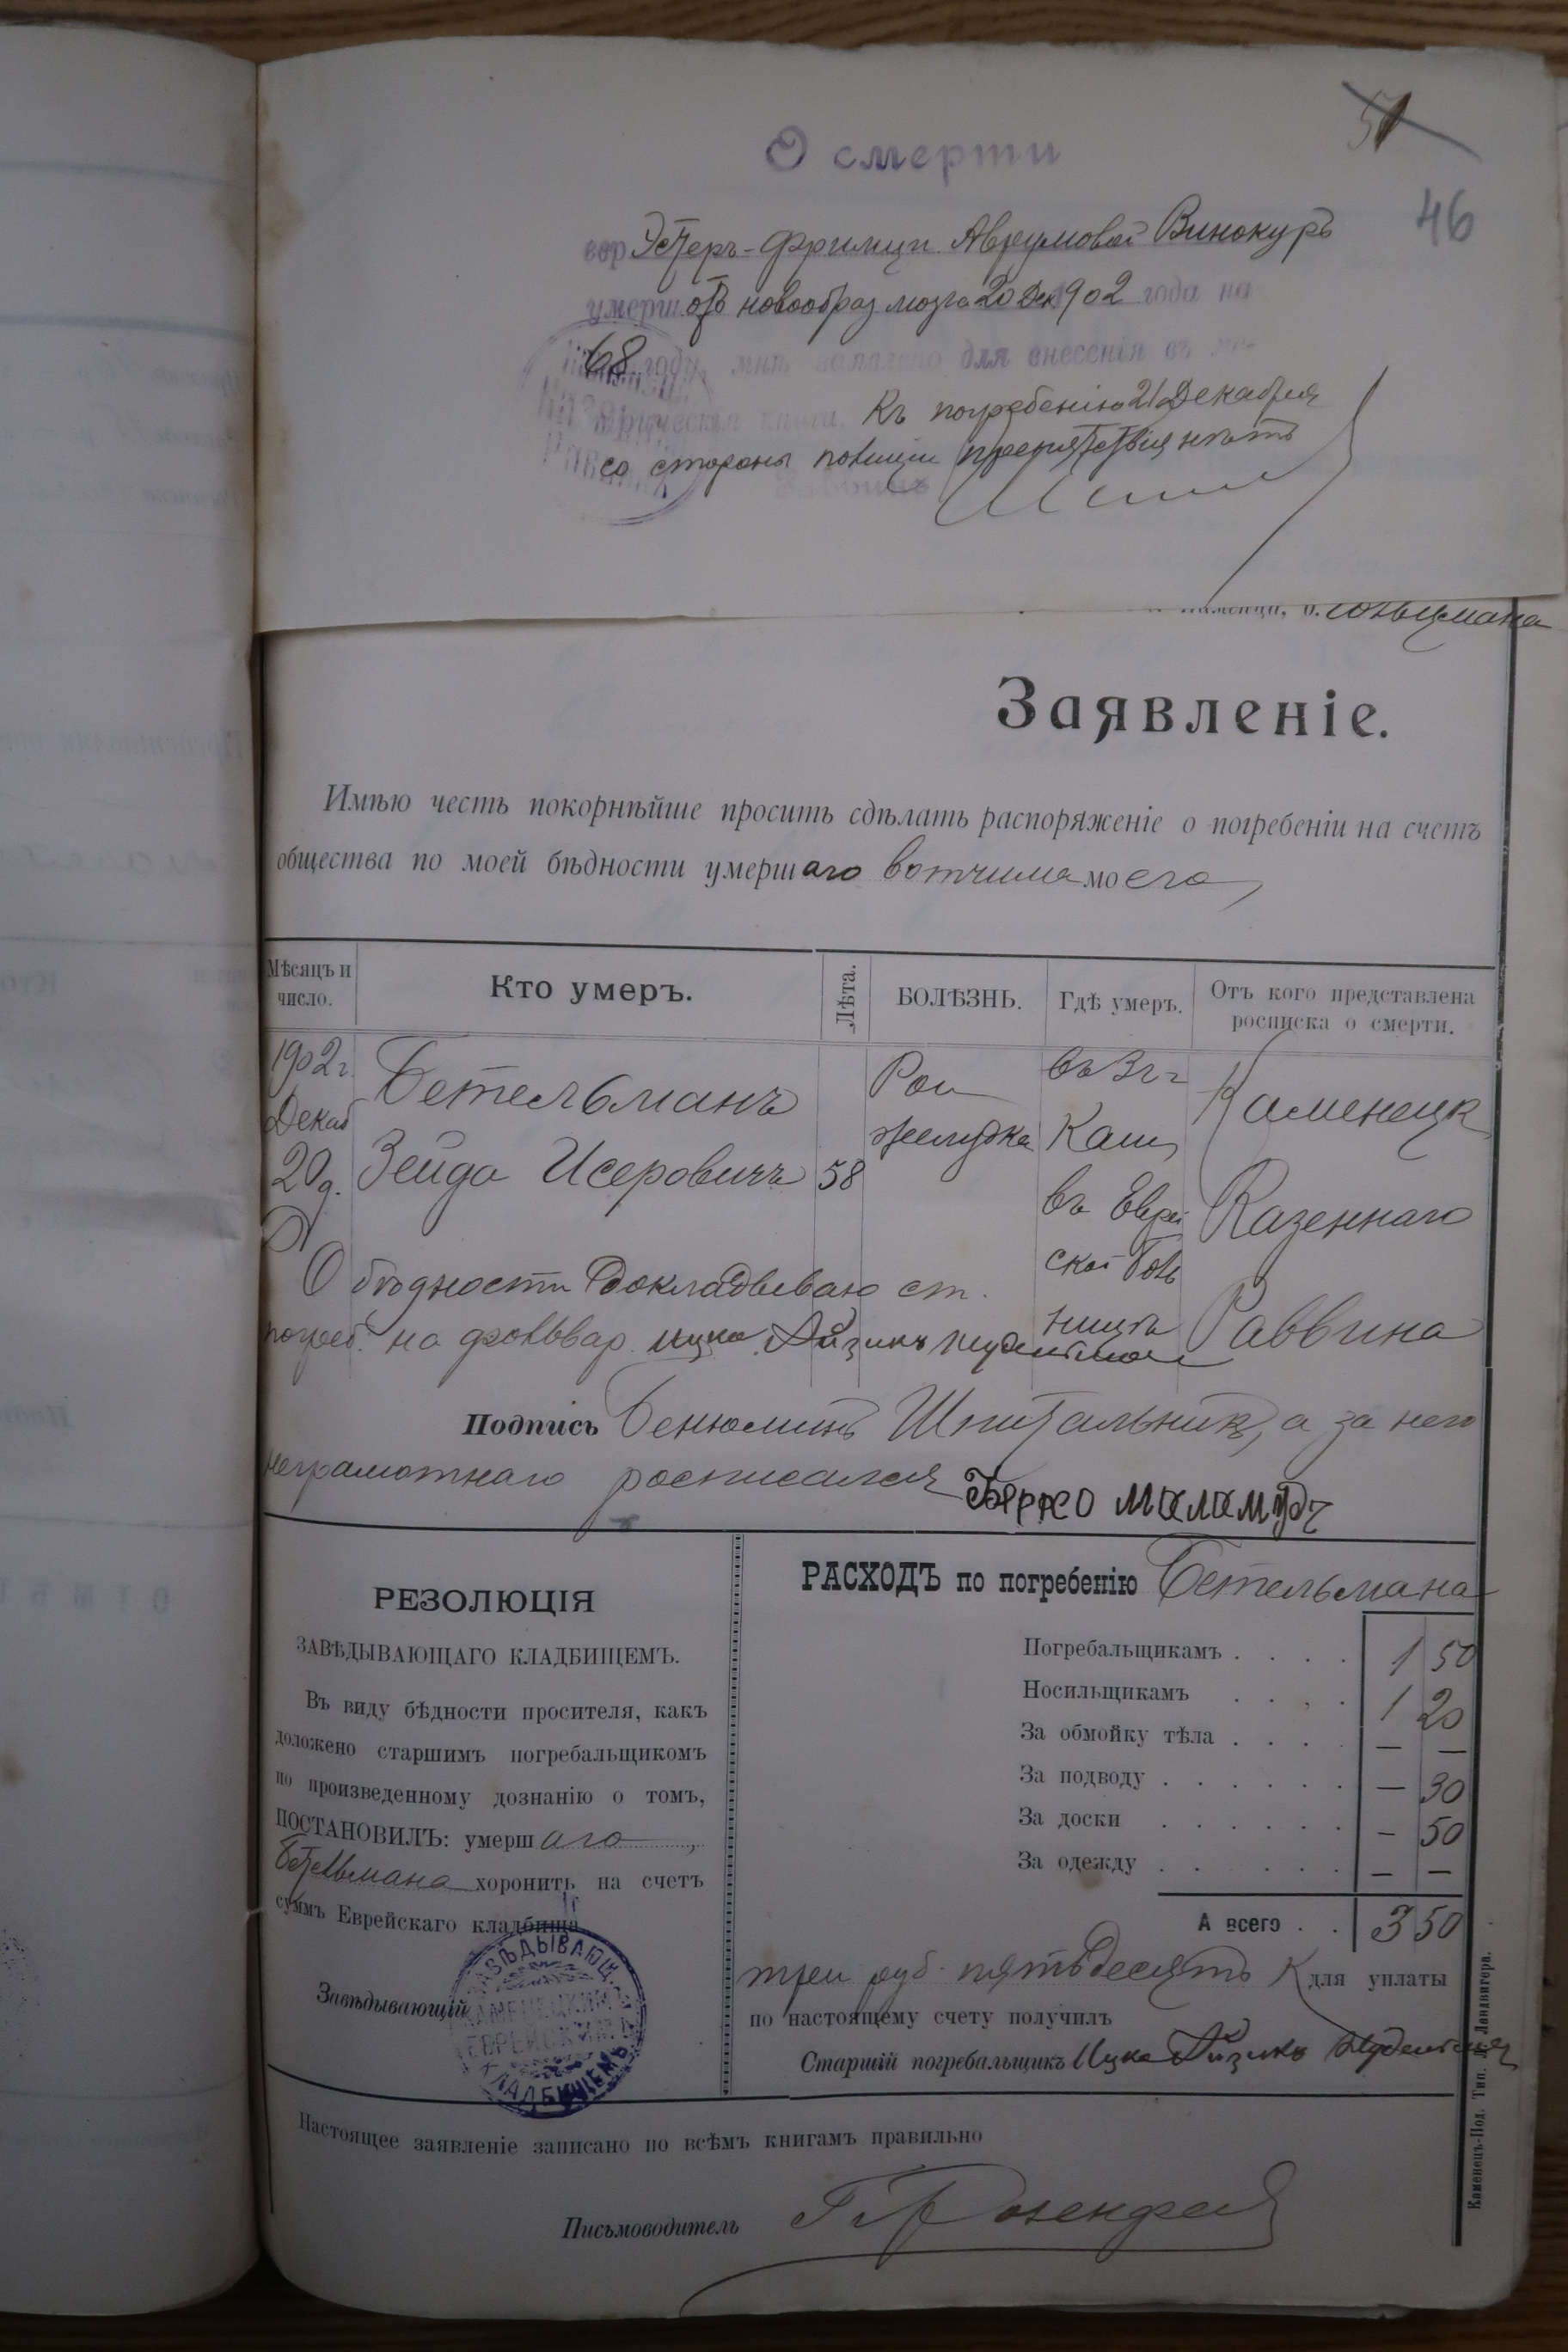 51
46
О смерти
Эстеръ-Фримци Аврумовой Винокуръ
умерш. отъ новообраз мозга 20 Дек 902 года на
68 году, мнѣ заявлено для внесенія въ ме-
трическія книги. Къ погребенію 21 Декабря
со стороны полиціи препятствія нѣтъ
Гольцмана
Заявленіе.
Имѣю честь покорнѣйше просить сдѣлать распоряженіе о погребеніи на счетъ
общества по моей бѣдности умершаго вотчима моего
Мѣсяцъ и число.
Кто умеръ.
Лѣта.
БОЛѢЗНЬ.
Гдѣ умеръ.
Отъ кого представлена росписка о смерти.
1902 г.
Декаб
20 д.
Бетельманъ
Зейда Исеровичъ
58
Рак
желудка
въ
Кам
въ Еврей
ской боль
ницѣ
Каменецк
Казеннаго
Раввина
О бѣдности докладываю ст.
погреб. на фольвар. Ицко Айзикъ
Подпись Бенюминъ Шпитальникъ, а за него
неграмотнаго росписался Берко Маламудъ
РЕЗОЛЮЦІЯ
ЗАВѢДЫВАЮЩАГО КЛАДБИЩЕМЪ.
Въ виду бѣдности просителя, какъ
доложено старшимъ погребальщикомъ
по произведенному дознанію о томъ,
ПОСТАНОВИЛЪ: умершаго,
Бетельмана хоронить на счетъ
суммъ Еврейскаго кладбища
Завѣдывающій
ЗАВѢДЫВАЮЩ.
КАМЕНЕЦКИМЪ
ЕВРЕЙСКИМЪ
КЛАДБИЩЕМЪ
РАСХОДЪ по погребенію Бетельмана
Погребальщикамъ . . . . 1 50
Носильщикамъ . . . . 1 20
За обмойку тѣла . . . . — —
За подводу . . . . . . — 30
За доски . . . . . . — 50
За одежду . . . . . . — —
А всего . . 3 50
три руб. пятьдесять К для уплаты
по настоящему счету получилъ
Старшій погребальщикъ Ицко Айзикъ
Настоящее заявленіе записано по всѣмъ книгамъ правильно
Письмоводитель Розенфельд
Каменецъ-Под. Тип. Ландвигера.